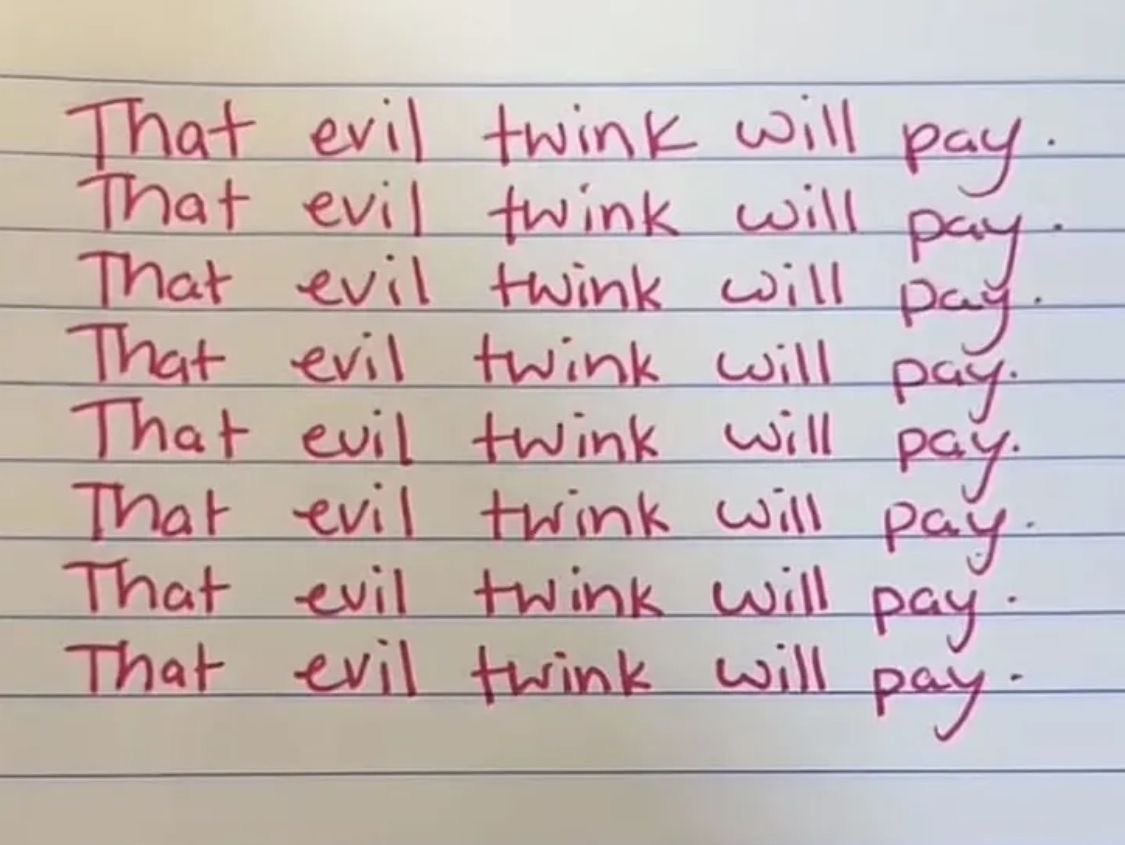 That evil twink will pay.
That evil twink will pay.
That evil twink will pay.
That evil twink will pay.
That evil twink will pay.
That evil twink will pay.
That evil twink will pay.
That evil twink will pay.